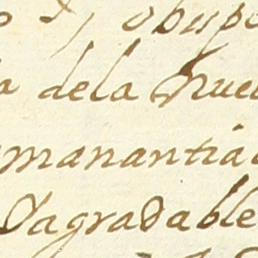 y obispo
dela nueu
manantia
Dagradable